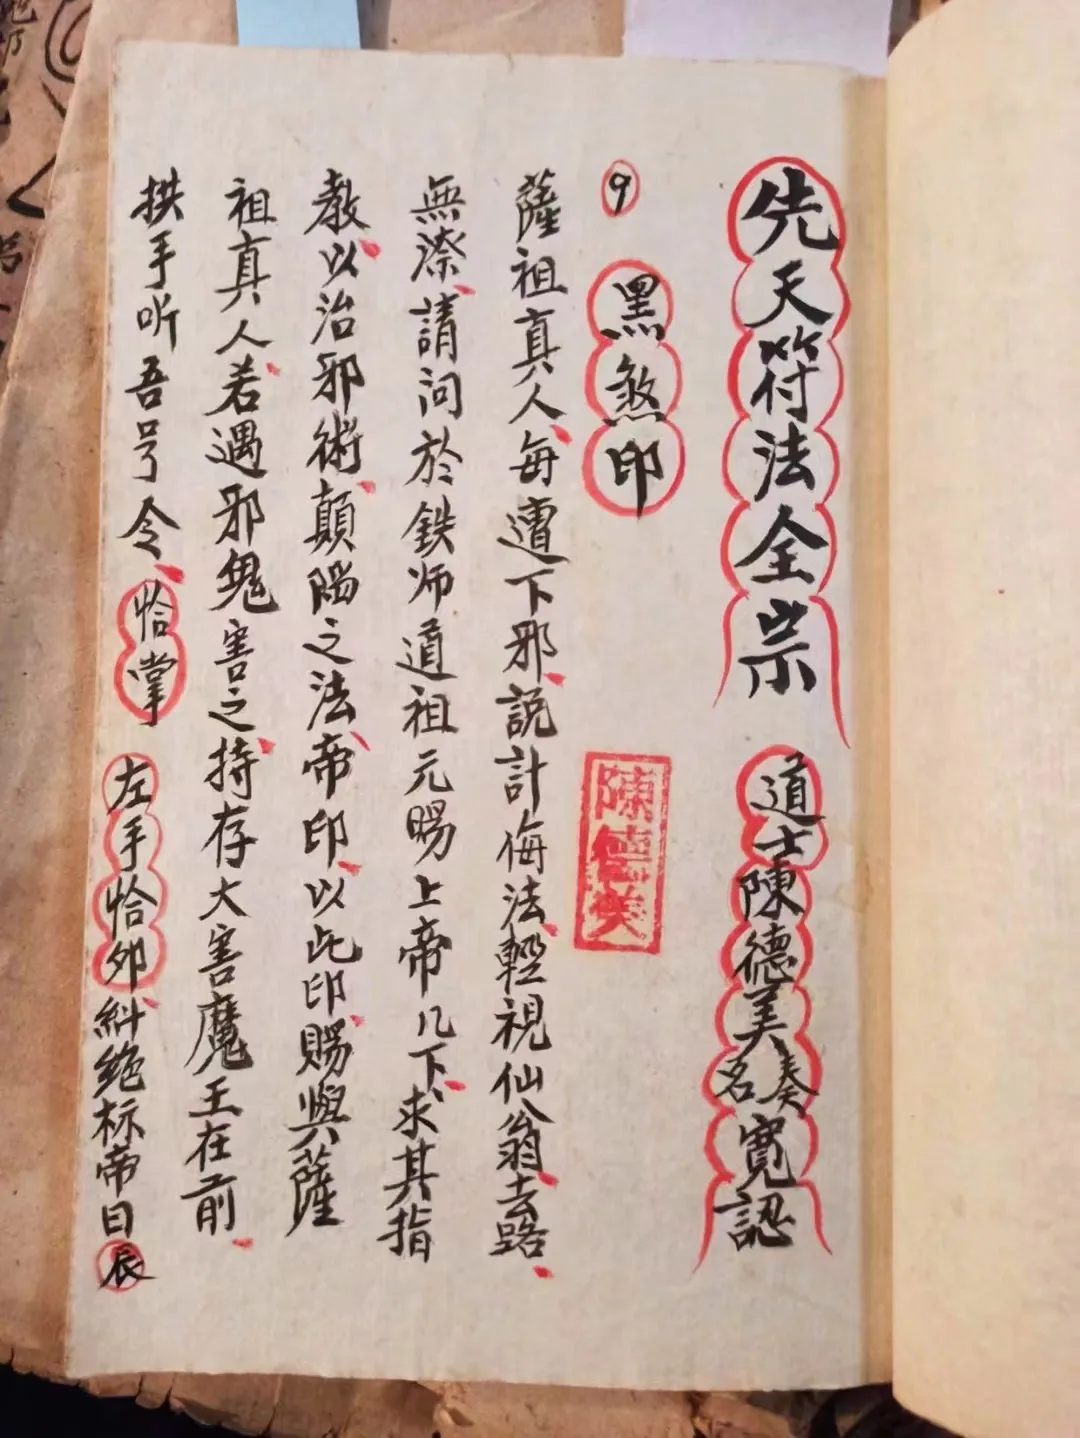 先天符法全宗
道士陳德美奏名寬認
9 黑煞印
陳德美
薩祖真人每遭下邪説計侮法輕視仙翁去路
無漈請问於鉄师道祖元賜上帝几下求其指
教以治邪術顛陽之法帝印以此印賜與薩
祖真人若遇邪鬼害之持存大害魔王在前
拱手听吾号令恰掌
左手恰夘糾絶标帝日辰